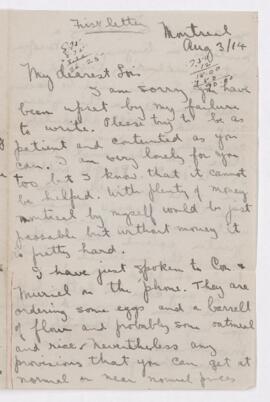 First letter
Montreal
Aug 3/14
My dearest
I am sorry you have
been upset by my failure
to write. Please try to be as
patient and contented as you
can. I am very lonely for you
too but I know that it cannot
be helped. With plenty of money
Montreal by myself would be just
passable but without money it
is pretty hard.
I have just spoken to Con &
Muriel on the 'phone. They are
ordering some eggs and a barrell
of flour and probably some oatmeal
and rice. Nevertheless any
provisions that you can get at
normal or near normal prices